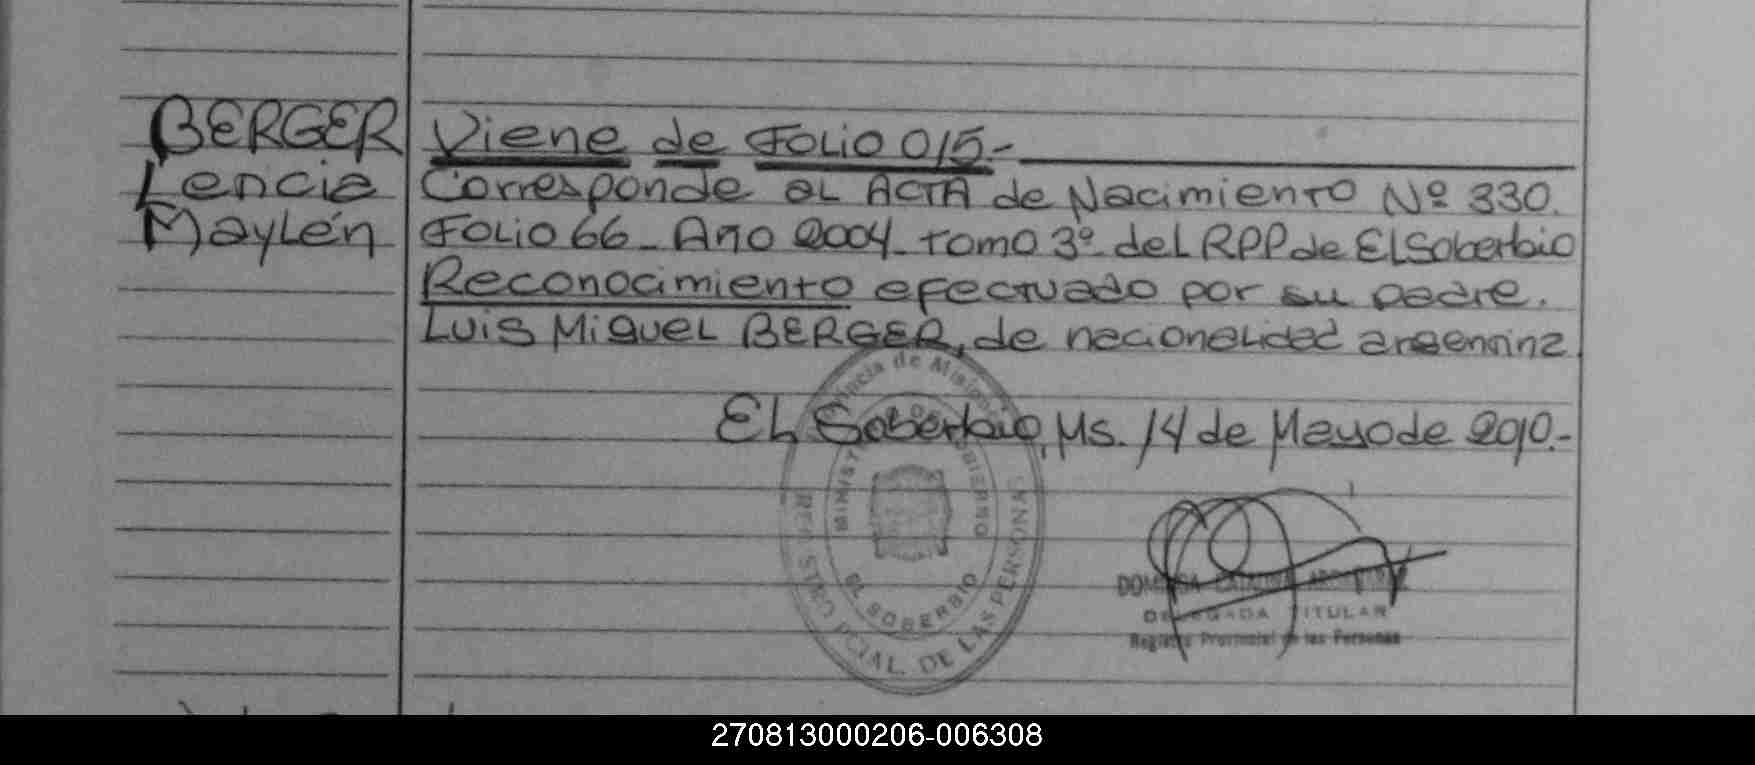 BERGER
Lencia
Maylén
Viene de Folio 015.-
Corresponde al ACTA de Nacimiento Nº 330.
Folio 66_ Año 2004_ Tomo 3º_ del RPP de El Soberbio
Reconocimiento efectuado por su padre.
Luis Miguel BERGER, de nacionalidad argentina
El Soberbio, Ms. 14 de Mayo de 2010.-
Provincia de Misiones
MINISTERIO GOBIERNO
EL SOBERBIO
REGISTRO PCIAL. DE LAS PERSONAS
DELEGADA TITULAR
Registro Provincial de las Personas
270813000206-006308